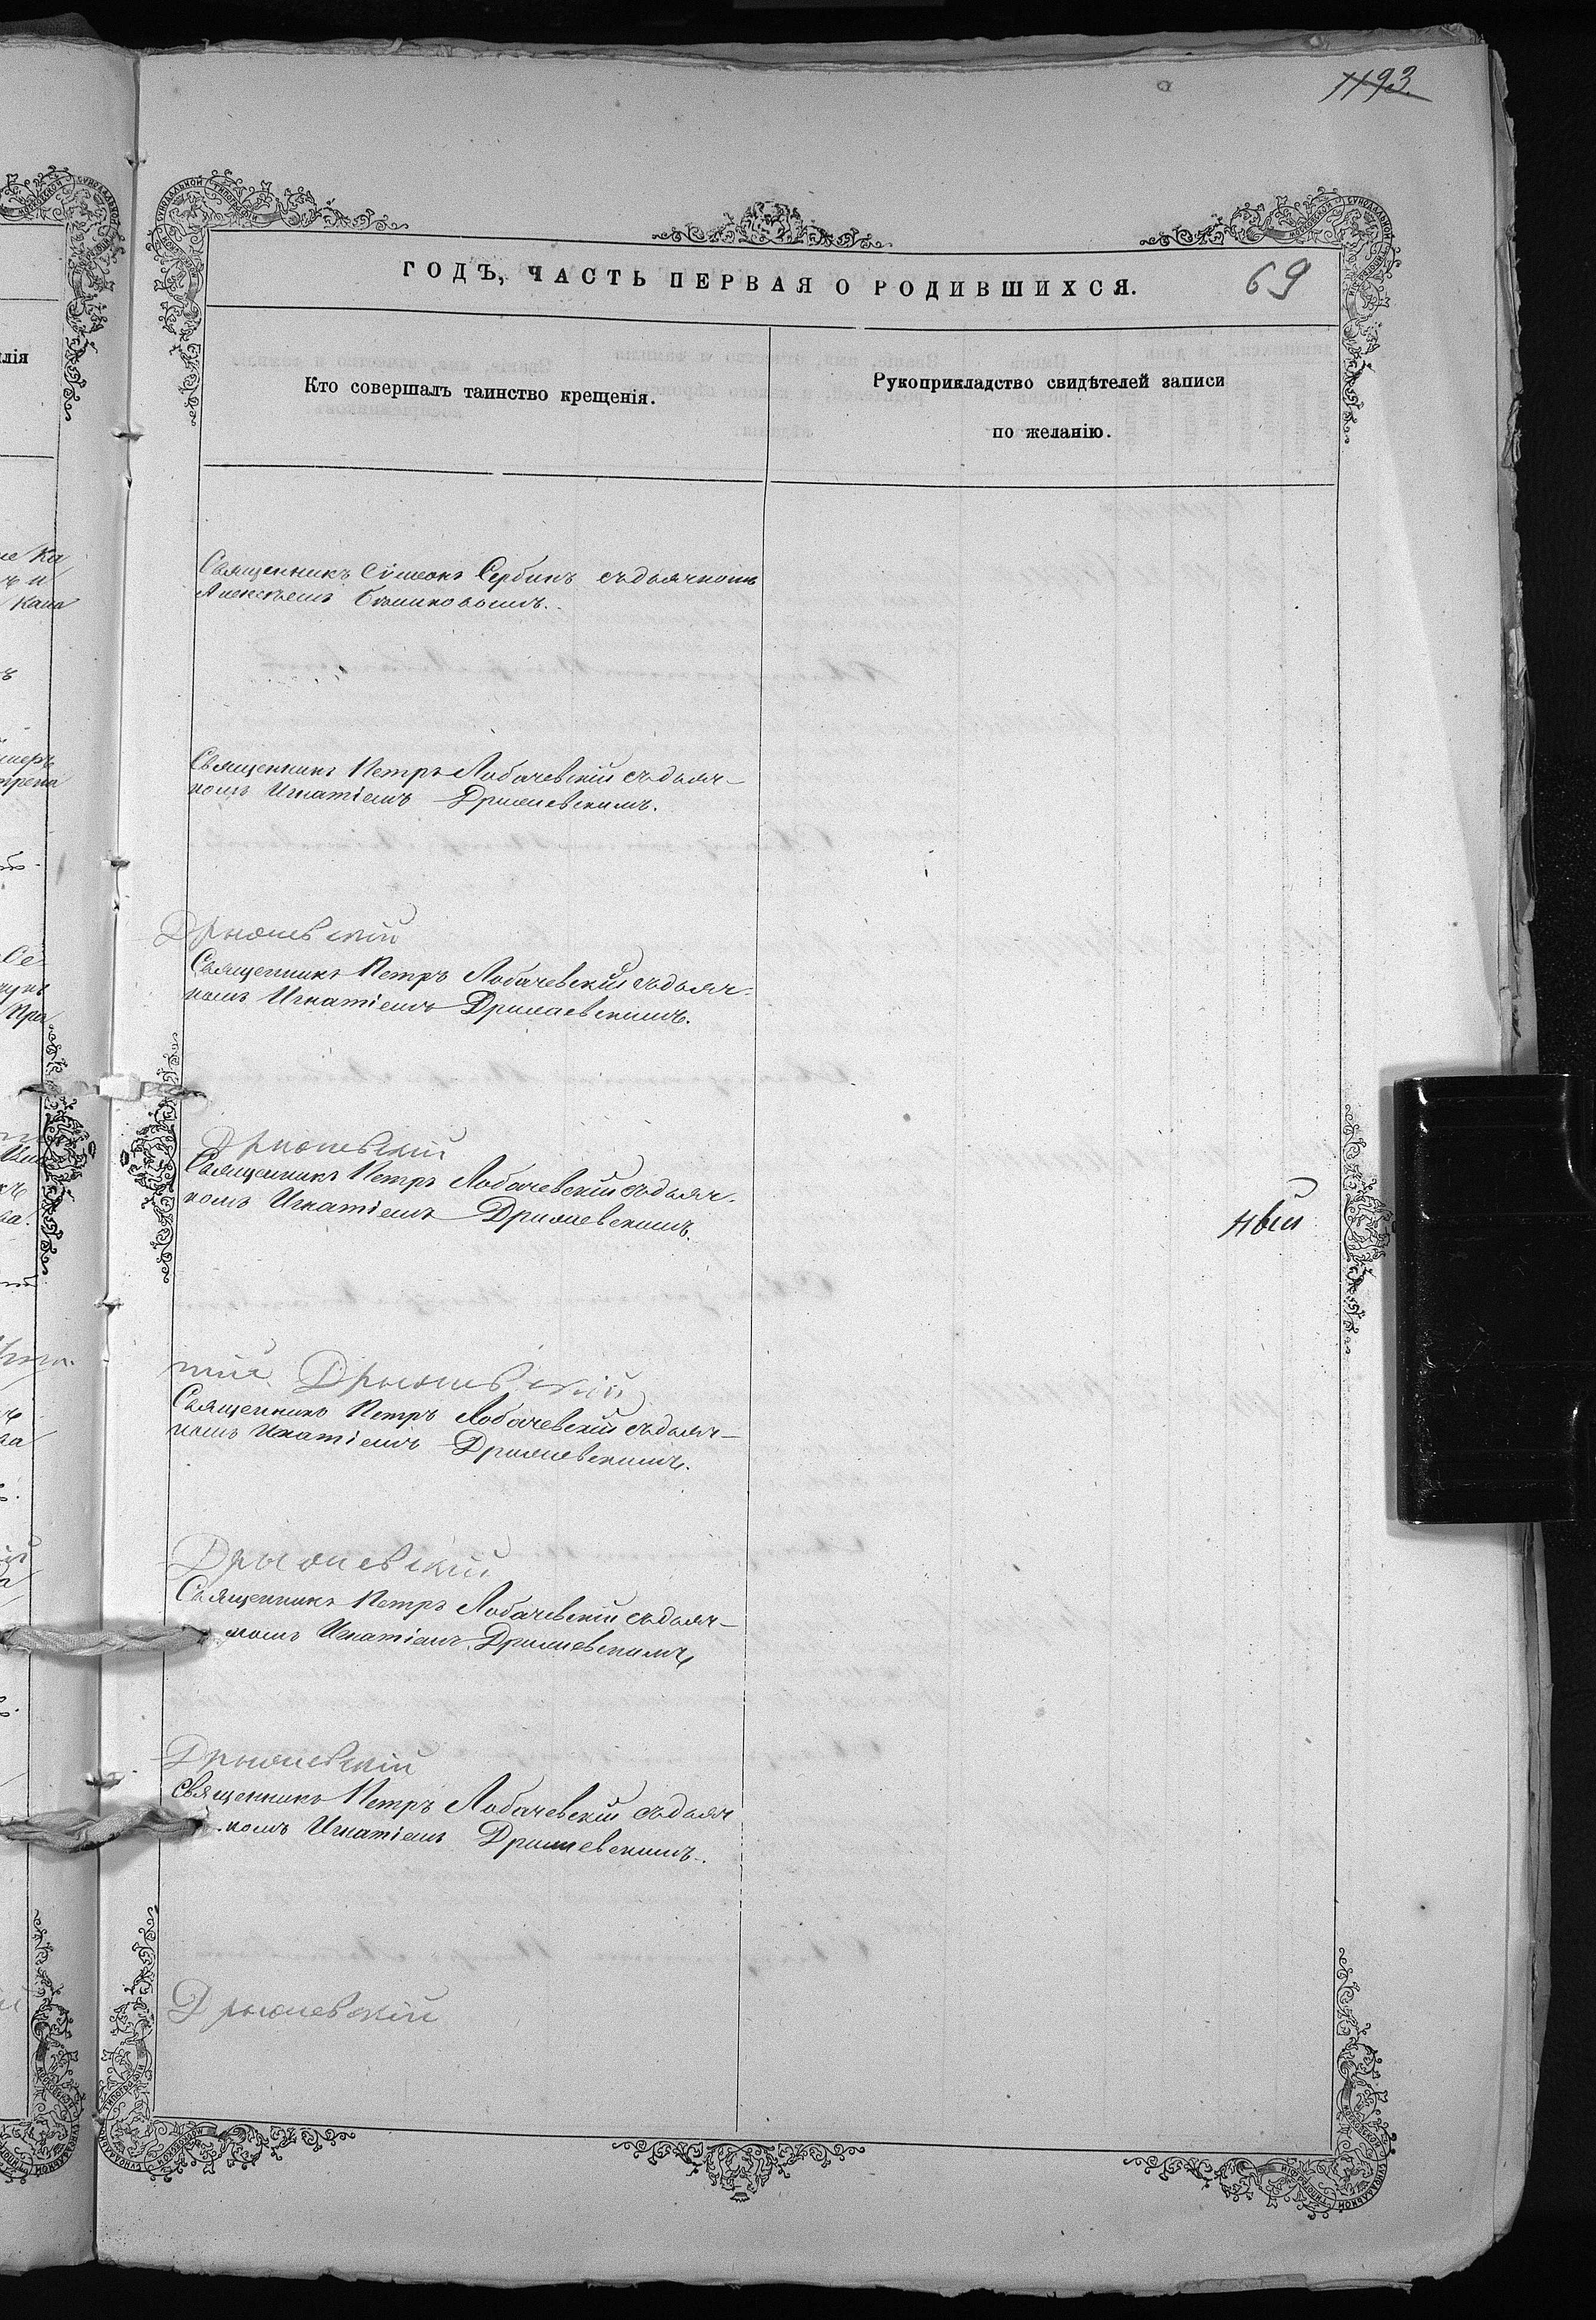 1193.
ГОДЪ, ЧАСТЬ ПЕРВАЯ О РОДИВШИХСЯ.
69
Кто совершалъ таинство крещенія.
Рукоприкладство свидѣтелей записи
по желанію.
Священникъ Сѵмеонъ Сербинъ съ дьячкомъ
Алексѣемъ
Священникъ Петръ Лобачевскій съ дьяч-
комъ Игнатіемъ Дриюневскимъ.
Дрыюневскій
Священникъ Петръ Лобачевскій съ дьяч-
комъ Игнатіемъ Дриюневскимъ.
Дрыюневскій
Священникъ Петръ Лобачевскій съ дьяч-
комъ Игнатіемъ Дриюневскимъ.
ный
тій Дрыюневскій
Священникъ Петръ Лобачевскій съ дьяч-
комъ Игнатіемъ Дриюневскимъ.
Дрыюневскій
Священникъ Петръ Лобачевскій съ дьяч-
комъ Игнатіемъ Дриюневскимъ
Дрыюневскій
Священникъ Петръ Лобачевскій съ дьяч
комъ Игнатіемъ Дриюневскимъ.
Дрыюневскій